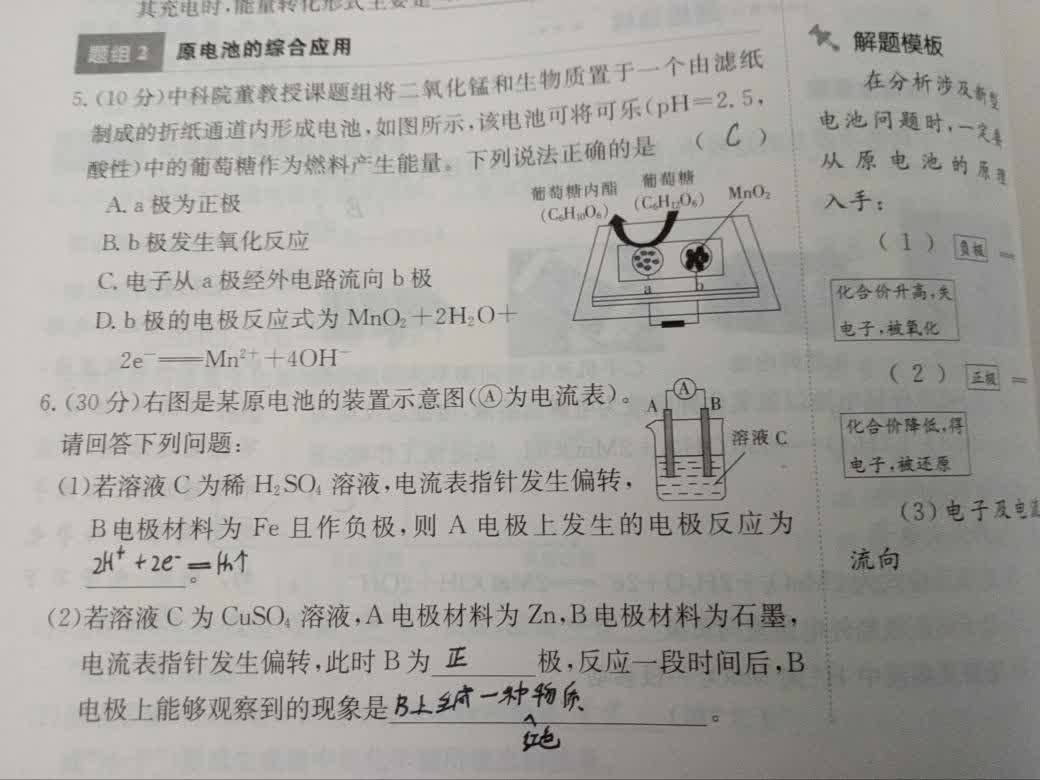 其充电时,能量转化形式主要是
题组2 原电池的综合应用
5.(10分)中科院董教授课题组将二氧化锰和生物质置于一个由滤纸
制成的折纸通道内形成电池,如图所示,该电池可将可乐(pH=2.5,
酸性)中的葡萄糖作为燃料产生能量。下列说法正确的是 ( C )
A. a极为正极
B. b极发生氧化反应
C. 电子从a极经外电路流向b极
D. b极的电极反应式为MnO₂+2H₂O+
2e⁻══Mn²⁺+4OH⁻
葡萄糖内酯 葡萄糖 MnO₂
(C₆H₁₀O₆) (C₆H₁₂O₆)
a b
6.(30分)右图是某原电池的装置示意图(Ⓐ为电流表)。
请回答下列问题:
A Ⓐ B
溶液C
(1)若溶液C为稀H₂SO₄溶液,电流表指针发生偏转,
B电极材料为Fe且作负极,则A电极上发生的电极反应为
2H⁺+2e⁻=H₂↑。
(2)若溶液C为CuSO₄溶液,A电极材料为Zn,B电极材料为石墨,
电流表指针发生偏转,此时B为 正 极,反应一段时间后,B
电极上能够观察到的现象是B上生成一种物质。
红色
解题模板
在分析涉及新型
电池问题时,一定要
从原电池的原理
入手:
(1) 负极 =
化合价升高,失
电子,被氧化
(2) 正极 =
化合价降低,得
电子,被还原
(3)电子及电流
流向